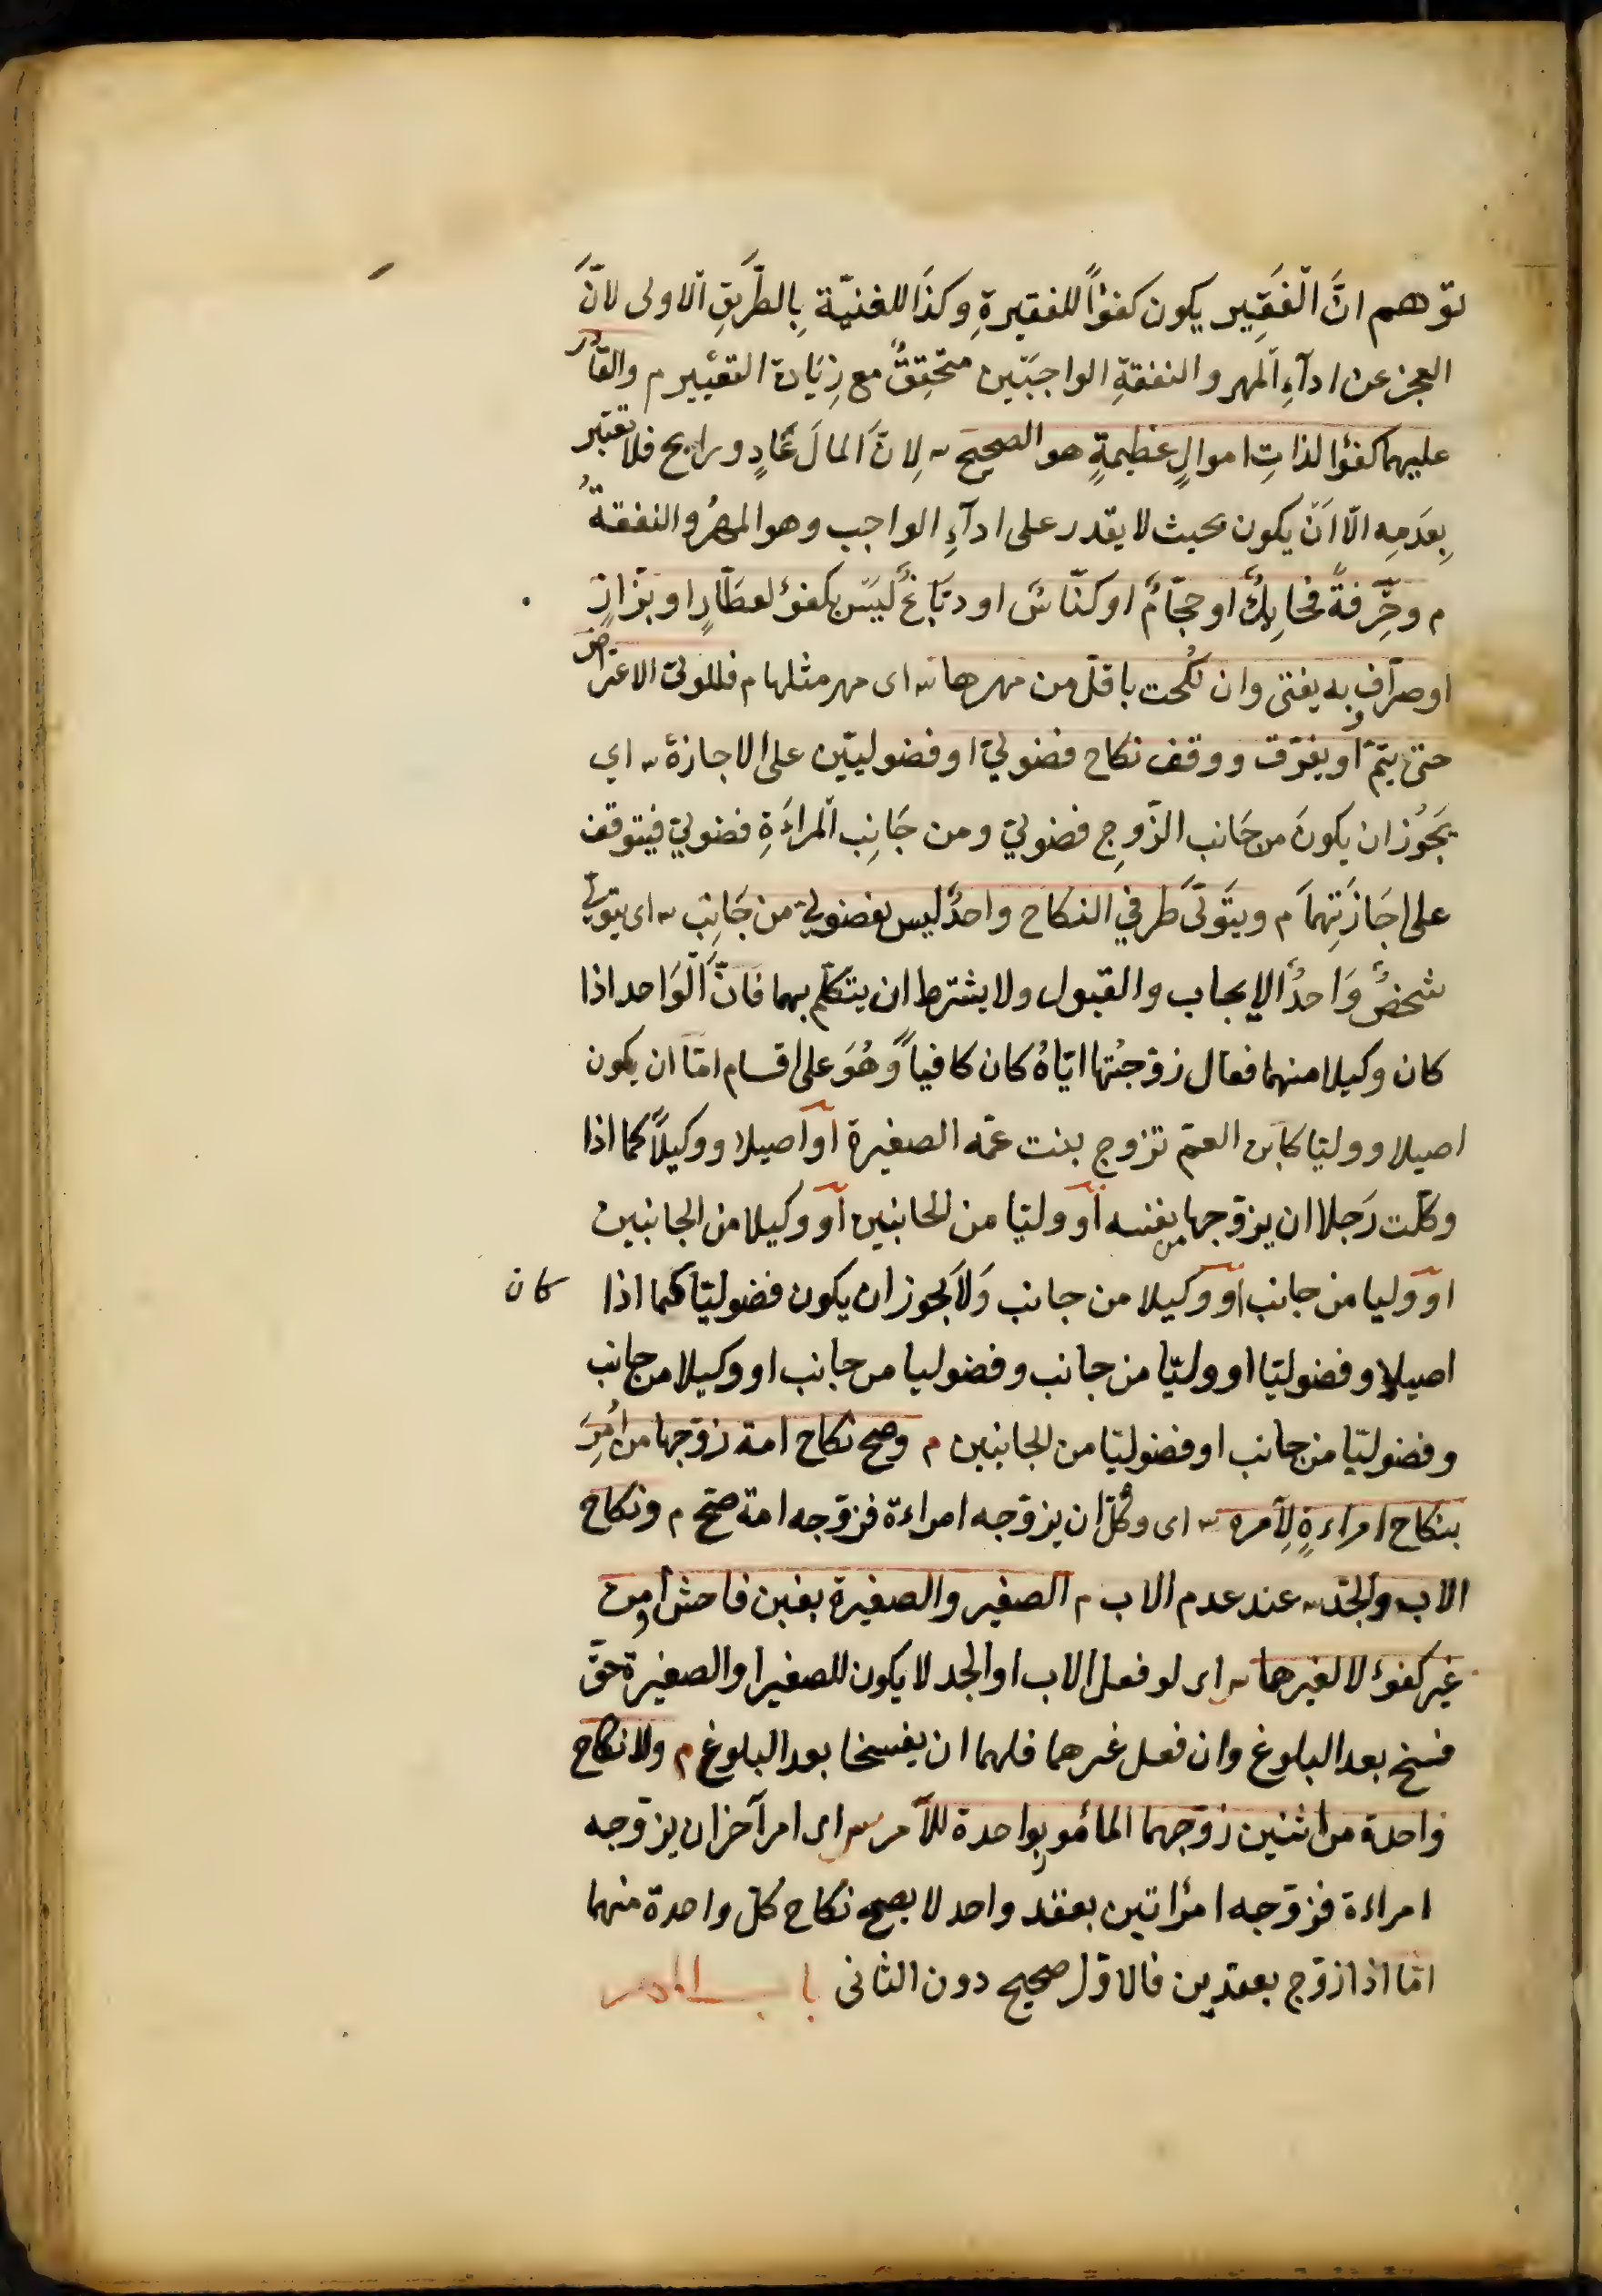 توهم انَّ الفَقِير يكون كفؤاً للفقيرةِ وكذَا للغنيّة بِالطَّريقِ الاولى لانَّ
العجز عن ادآءِ المهر والنفقةِ الواجبَتين متحقِقٌ مع زِيَادة التعْيير م والقَادر
عليهما كفؤا لذاتِ اموالٍ عظيمةٍ هو الصحيح ش لِانَّ المالَ غَادٍ ورايح فلا تعتبر
بِعدَمِه الّا اَنّ يكون بحيث لا يقدر على ادآءِ الواجب وهو المهرُ والنفقةُ
م وحِرفةً فحَايِكٌ او حجّامٌ او كنّاسٌ او دبّاغٌ ليسَ بكفؤ لعطّارٍ او بزّازٍ
او صرّاف وبه يفتى وان نُكحت باقلّ من مهرها ش اى مهر مثلها م فللولىّ الاعتراض
حتى يتمّ او يفرّق ووقف نكاح فضوليّ او فضوليّين على الاجازة ش اي
يَجُوز ان يكونَ من جَانب الزّوِج فضوليّ ومن جَانِب المراءَةِ فضوليّ فيتوقف
على اجَازَتِهمَا م ويتَولَّى طرفي النكاح واحدٌ ليس بفضوليّ من جَانِب ش اى يتولّى
شخصٌ وَاحدٌ الايجاب والقبول ولا يشترط ان يتكلّم بهما فانَّ الوَاحد اذا
كان وكيلا منهما فقال زوّجتُها ايّاهُ كان كافياً وَهُوَ على اقسام امّا ان يكون
اصيلا ووليّا كابن العمّ تزوج بنت عمّه الصغيرة او اصيلا ووكيلاً كما اذا
وكّلت رَجلا ان يزوّجها من نفسه او وليّا من الجانبين او وكيلا من الجانبين
او وليا من جانب او وكيلا من جانب وَلاَ يجوز ان يكون فضوليّا كما اذا كان
اصيلا وفضوليّا او وليّا من جانب وفضوليا من جانب او وكيلا من جانب
وفضوليّا من جانب او فضوليّا من الجانبين م وصح نكاح امة زوّجها من اُمِرَ
بنكاح امراءةٍ لِآمره ش اى وُكّل ان يزوّجه امراءة فزوّجه امة صحّ م ونكاح
الاب والجدّ ش عند عدم الاب م الصغير والصغيرة بغبن فاحش او من
غير كفؤ لا لغيرهما ش اى لو فعل الاب او الجد لا يكون للصغير او الصغيرة حقّ
فسخ بعد البلوغ وان فعل غيرهما فلهما ان يفسخا بعد البلوغ م ولا نكاح
واحدة من اثنين زوّجهما المأمور بواحدة للآمر ش اى امر آخر ان يزوّجه
امراءة فزوّجه امرأتين بعقد واحد لا يصح نكاح كلّ واحدة منهما
امّا اذا زوّج بعقدين فالاوّل صحيح دون الثانى باب المهر